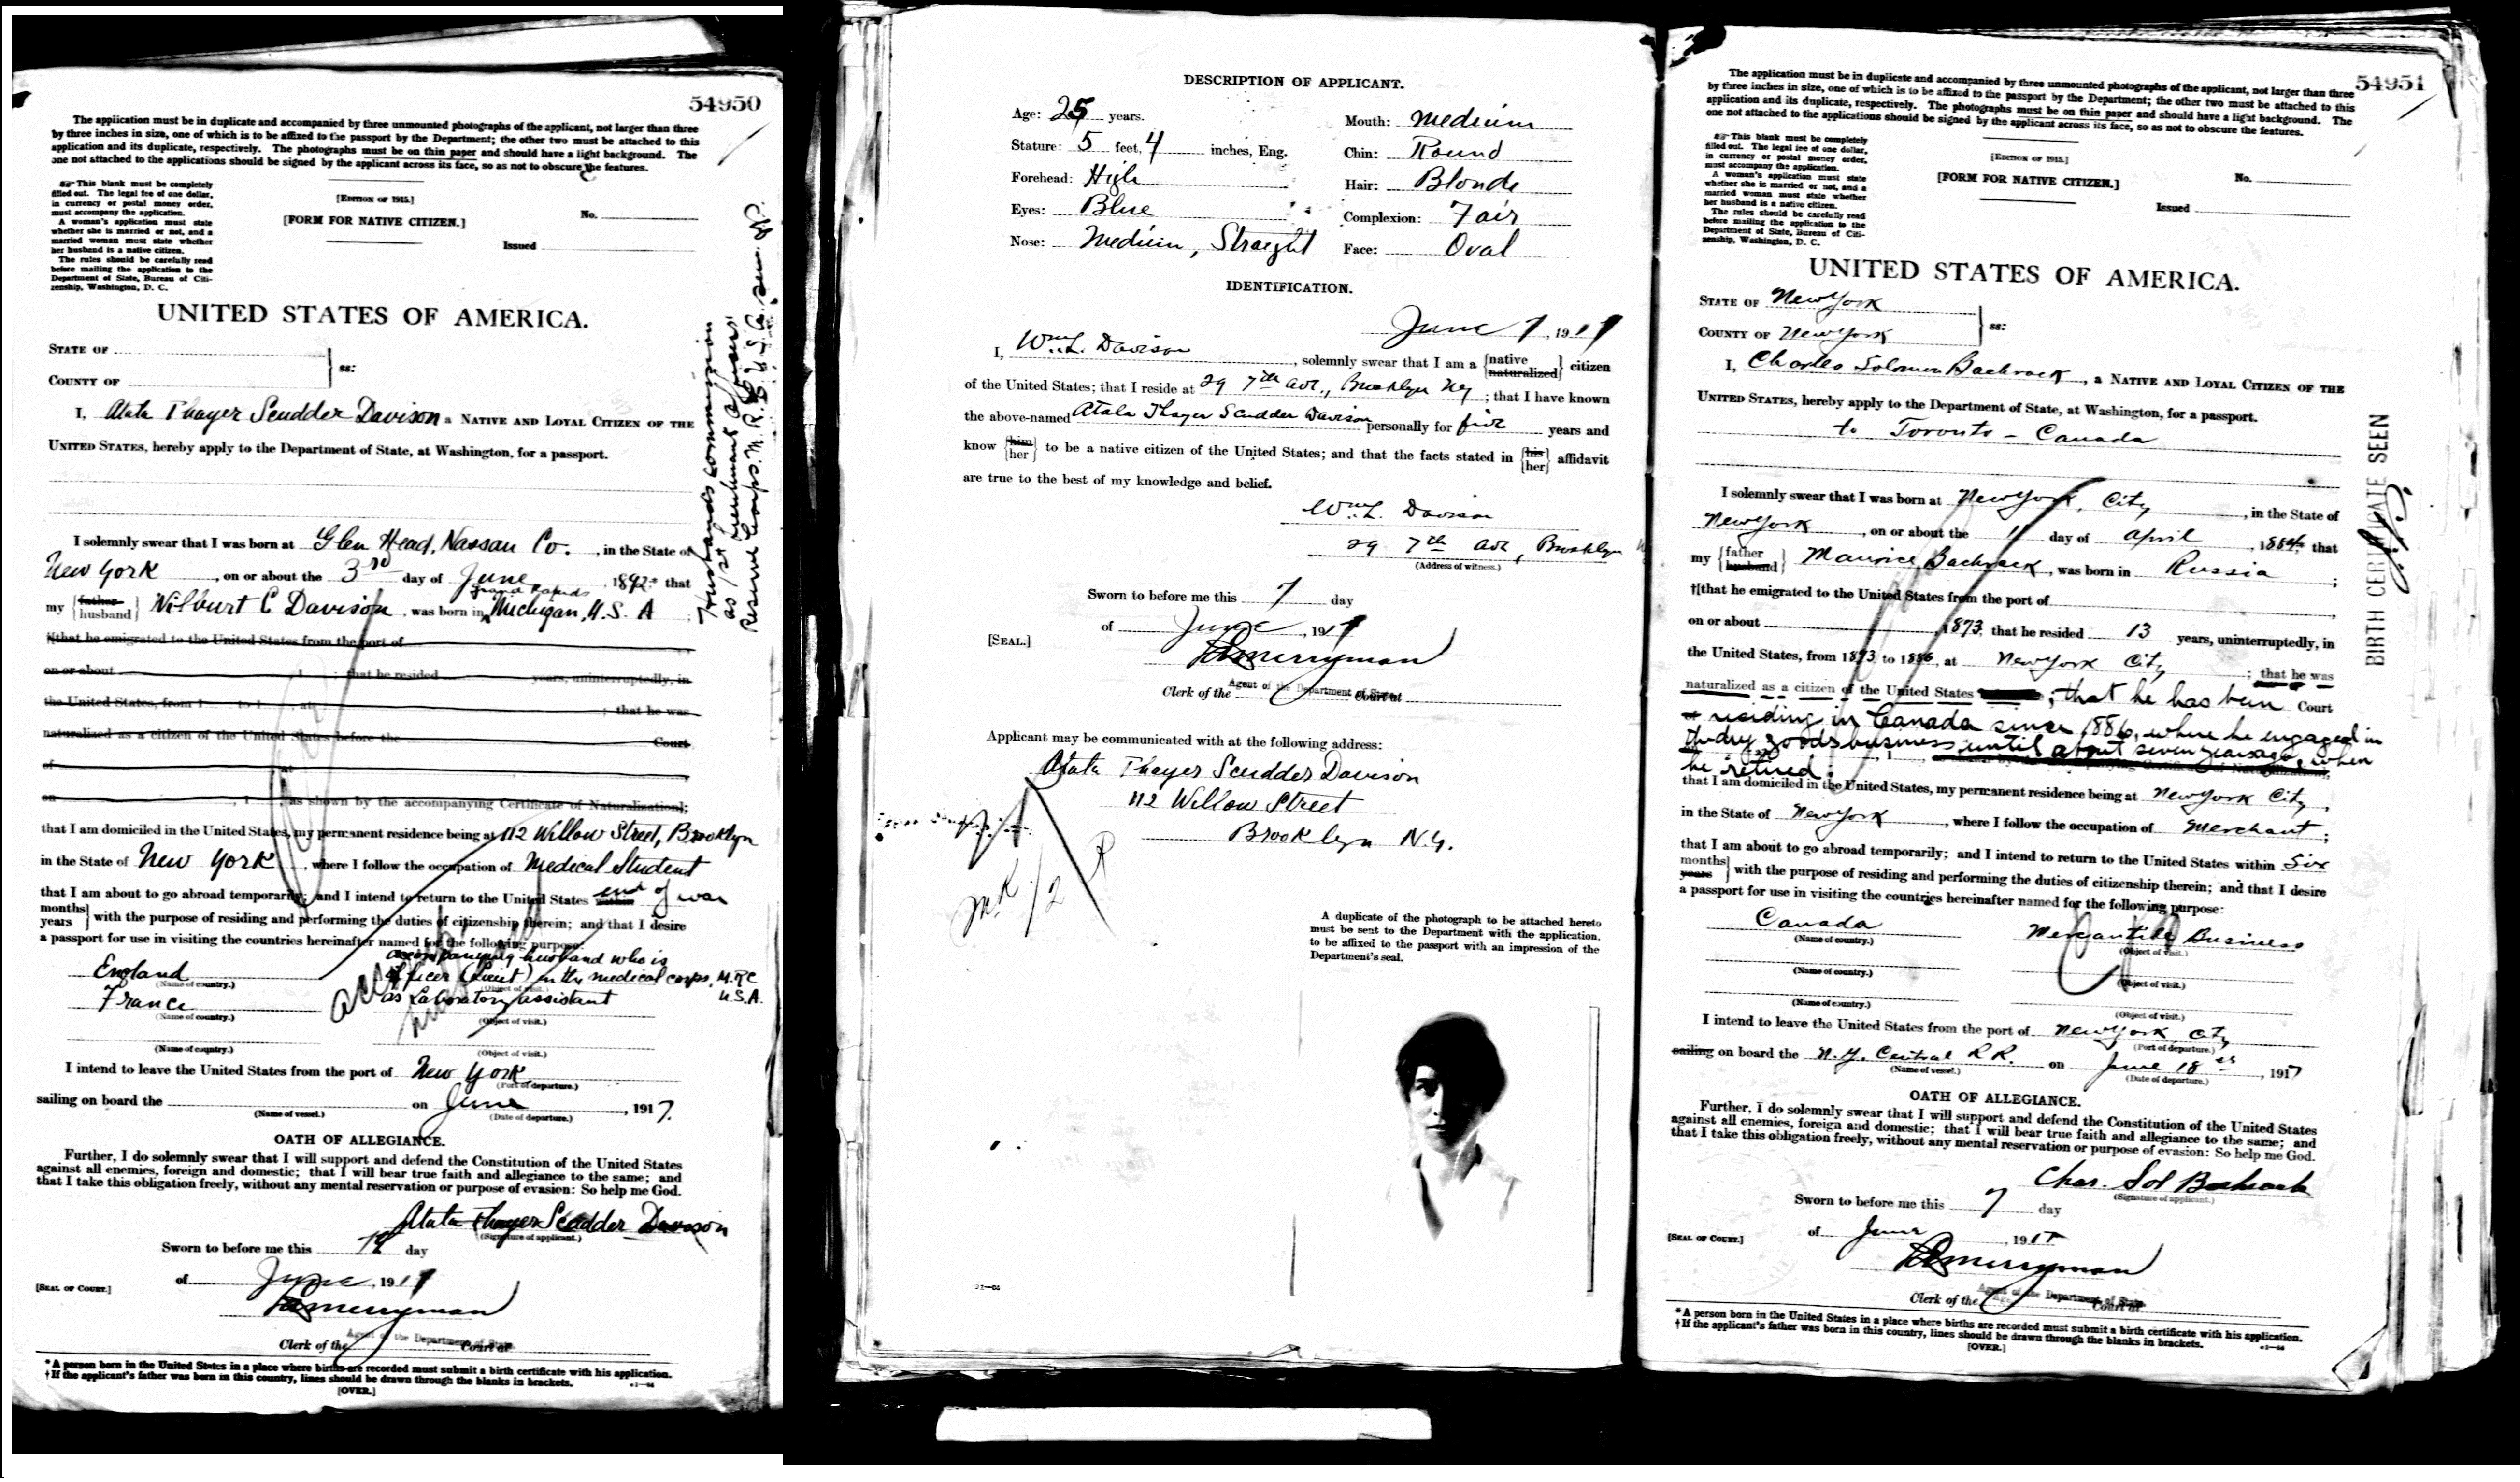 54950
The application must be in duplicate and accompanied by three unmounted photographs of the applicant, not larger than three
by three inches in size, one of which is to be affixed to the passport by the Department; the other two must be attached to this
application and its duplicate, respectively. The photographs must be on thin paper and should have a light background. The
one not attached to the applications should be signed by the applicant across its face, so as not to obscure the features.
This blank must be completely
filled out. The legal fee of one dollar,
in currency or postal money order,
must accompany the application.
A woman's application must state
whether she is married or not, and a
married woman must state whether
her husband is a native citizen.
The rules should be carefully read
before mailing the application to the
Department of State, Bureau of Citi-
zenship, Washington, D. C.
[EDITION OF 1915.]
[FORM FOR NATIVE CITIZEN.]
No.
Issued
UNITED STATES OF AMERICA.
STATE OF
COUNTY OF
ss:
I, Atala Thayer Scudder Davison a NATIVE AND LOYAL CITIZEN OF THE
UNITED STATES, hereby apply to the Department of State, at Washington, for a passport.
I solemnly swear that I was born at Glen Head, Nassau Co., in the State of
New York, on or about the 3rd day of June, 1892* that
Grand Rapids
my {father husband} Wilburt C Davison, was born in Michigan, U.S.A;
†[that he emigrated to the United States from the port of
on or about , 1 ; that he resided years, uninterruptedly, in
the United States, from 1 to 1 , at ; that he was
naturalized as a citizen of the United States before the Court
of at
on , 1 , as shown by the accompanying Certificate of Naturalization];
that I am domiciled in the United States, my permanent residence being at 112 Willow Street, Brooklyn
in the State of New York, where I follow the occupation of Medical Student
that I am about to go abroad temporarily; and I intend to return to the United States within end of war
months years} with the purpose of residing and performing the duties of citizenship therein; and that I desire
a passport for use in visiting the countries hereinafter named for the following purpose:
accompanying husband who is
England officer (Lieut) in the medical corps, M.R.C
(Name of country.) (Object of visit.) U.S.A.
France as Laboratory assistant
(Name of country.) (Object of visit.)
(Name of country.) (Object of visit.)
I intend to leave the United States from the port of New York
(Port of departure.)
sailing on board the on June, 1917.
(Name of vessel.) (Date of departure.)
OATH OF ALLEGIANCE.
Further, I do solemnly swear that I will support and defend the Constitution of the United States
against all enemies, foreign and domestic; that I will bear true faith and allegiance to the same; and
that I take this obligation freely, without any mental reservation or purpose of evasion: So help me God.
Atala Thayer Scudder Davison
(Signature of applicant.)
Sworn to before me this 7 day
of June, 1917
[SEAL OF COURT.]
Merryman
Agent of the Department of State
Clerk of the Court at
*A person born in the United States in a place where births are recorded must submit a birth certificate with his application.
†If the applicant's father was born in this country, lines should be drawn through the blanks in brackets.
[OVER.]
Husband's commission
as 1st Lieutenant Officers'
Reserve Corps. M.R.C. U.S.A. seen.
DESCRIPTION OF APPLICANT.
Age: 25 years.
Mouth: Medium
Stature: 5 feet, 4 inches, Eng.
Chin: Round
Forehead: High
Hair: Blonde
Eyes: Blue
Complexion: Fair
Nose: Medium, Straight
Face: Oval
IDENTIFICATION.
June 7, 1917
I, Wm. L. Davison, solemnly swear that I am a {native naturalized} citizen
of the United States; that I reside at 29 7th Ave., Brooklyn Ny; that I have known
the above-named Atala Thayer Scudder Davison personally for five years and
know {him her} to be a native citizen of the United States; and that the facts stated in {his her} affidavit
are true to the best of my knowledge and belief.
Wm. L. Davison
29 7th Ave, Brooklyn
(Address of witness.)
Sworn to before me this 7 day
of June, 1917
[SEAL.]
Merryman
Agent of the Department of State
Clerk of the Court at
Applicant may be communicated with at the following address:
Atala Thayer Scudder Davison
112 Willow Street
Brooklyn N.Y.
A duplicate of the photograph to be attached hereto
must be sent to the Department with the application,
to be affixed to the passport with an impression of the
Department's seal.
54951
The application must be in duplicate and accompanied by three unmounted photographs of the applicant, not larger than three
by three inches in size, one of which is to be affixed to the passport by the Department; the other two must be attached to this
application and its duplicate, respectively. The photographs must be on thin paper and should have a light background. The
one not attached to the applications should be signed by the applicant across its face, so as not to obscure the features.
This blank must be completely
filled out. The legal fee of one dollar,
in currency or postal money order,
must accompany the application.
A woman's application must state
whether she is married or not, and a
married woman must state whether
her husband is a native citizen.
The rules should be carefully read
before mailing the application to the
Department of State, Bureau of Citi-
zenship, Washington, D. C.
[EDITION OF 1915.]
[FORM FOR NATIVE CITIZEN.]
No.
Issued
UNITED STATES OF AMERICA.
STATE OF New York
COUNTY OF New York
ss:
I, Charles Solomon Bachrack, a NATIVE AND LOYAL CITIZEN OF THE
UNITED STATES, hereby apply to the Department of State, at Washington, for a passport.
to Toronto - Canada
I solemnly swear that I was born at New York City, in the State of
New York, on or about the 11 day of April, 1884, that
my {father husband} Maurice Bachrack, was born in Russia;
†[that he emigrated to the United States from the port of
on or about 1873, that he resided 13 years, uninterruptedly, in
the United States, from 1873 to 1886, at New York City; that he was
naturalized as a citizen of the United States ; that he has been Court
residing in Canada since 1886, where he engaged in
the dry goods business until about seven years ago, when
he retired.
that I am domiciled in the United States, my permanent residence being at New York City,
in the State of New York, where I follow the occupation of Merchant;
that I am about to go abroad temporarily; and I intend to return to the United States within Six
months years} with the purpose of residing and performing the duties of citizenship therein; and that I desire
a passport for use in visiting the countries hereinafter named for the following purpose:
Canada Mercantile Business
(Name of country.) (Object of visit.)
(Name of country.) (Object of visit.)
(Name of country.) (Object of visit.)
I intend to leave the United States from the port of New York City
(Port of departure.)
sailing on board the N.Y. Central R.R. on June 18, 1917
(Name of vessel.) (Date of departure.)
OATH OF ALLEGIANCE.
Further, I do solemnly swear that I will support and defend the Constitution of the United States
against all enemies, foreign and domestic; that I will bear true faith and allegiance to the same; and
that I take this obligation freely, without any mental reservation or purpose of evasion: So help me God.
Chas. Sol Bachrack
(Signature of applicant.)
Sworn to before me this 7 day
of June, 1917
[SEAL OF COURT.]
Merryman
Agent of the Department of State
Clerk of the Court at
*A person born in the United States in a place where births are recorded must submit a birth certificate with his application.
†If the applicant's father was born in this country, lines should be drawn through the blanks in brackets.
[OVER.]
BIRTH CERTIFICATE SEEN